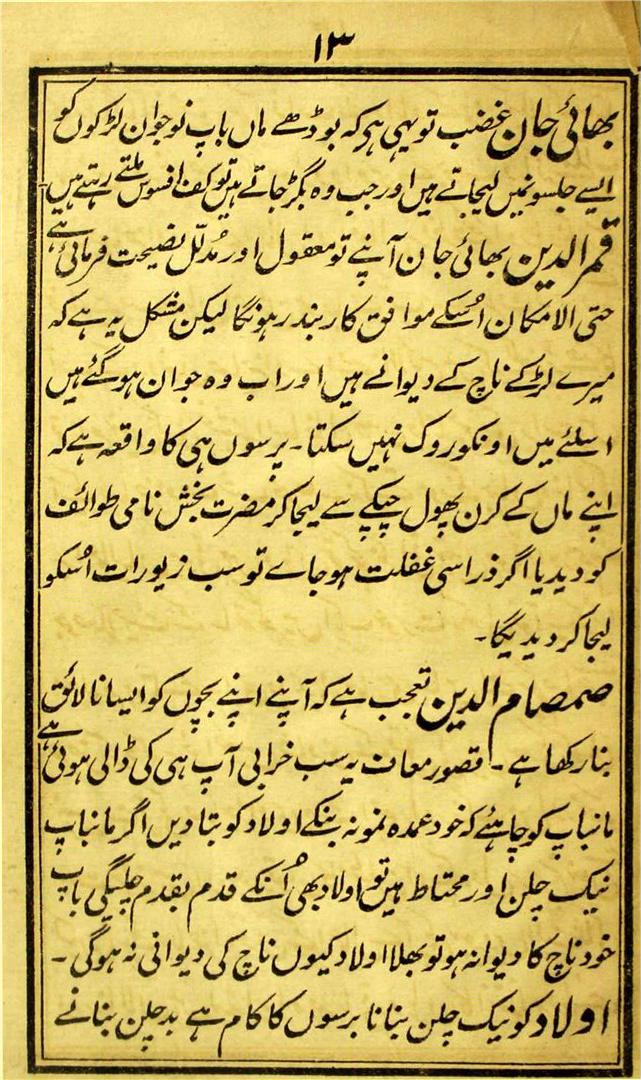 ١٣
بھائی جان غضب تو یہی ہی کہ بوڈھے ماں باپ نوجوان لڑکوں کو
ایسے جلسونمیں لیجاتے ہیں اور جب وہ بگڑ جاتے ہیں تو کف افسوس ملتے رہتے ہیں
قمر الدین بھائی جان آپنے تو معقول اور مُدلّل نصیحت فرمائی ہے
حتی الامکان اُسکے موافق کاربند رہونگا لیکن مشکل یہ ہے کہ
میرے لڑکے ناچ کے دیوانے ہیں اور اب وہ جوان ہو گئے ہیں
اسلئے میں اونکو روک نہیں سکتا۔ پرسوں ہی کا واقعہ ہے کہ
اپنے ماں کے کرن پھول چپکے سے لیجا کر مضرت بخش نامی طوائف
کو دیدیا اگر ذراسی غفلت ہو جاے تو سب زیورات اُسکو
لیجا کر دیدیگا۔
صمصام الدین تعجب ہے کہ آپنے اپنے بچوں کو ایسا نالائق
بنا رکھا ہے۔ قصور معاف یہ سب خرابی آپ ہی کی ڈالی ہوئی ہے
مانباپ کو چاہئے کہ خود عمدہ نمونہ بنکے اولاد کو بتادیں اگر مانباپ
نیک چلن اور محتاط ہیں تو اولاد بھی اُنکے قدم بقدم چلیگی باپ
خود ناچ کا دیوانہ ہو تو بھلا اولاد کیوں ناچ کی دیوانی نہ ہوگی۔
اولاد کو نیک چلن بنانا برسوں کا کام ہے بد چلن بنانے